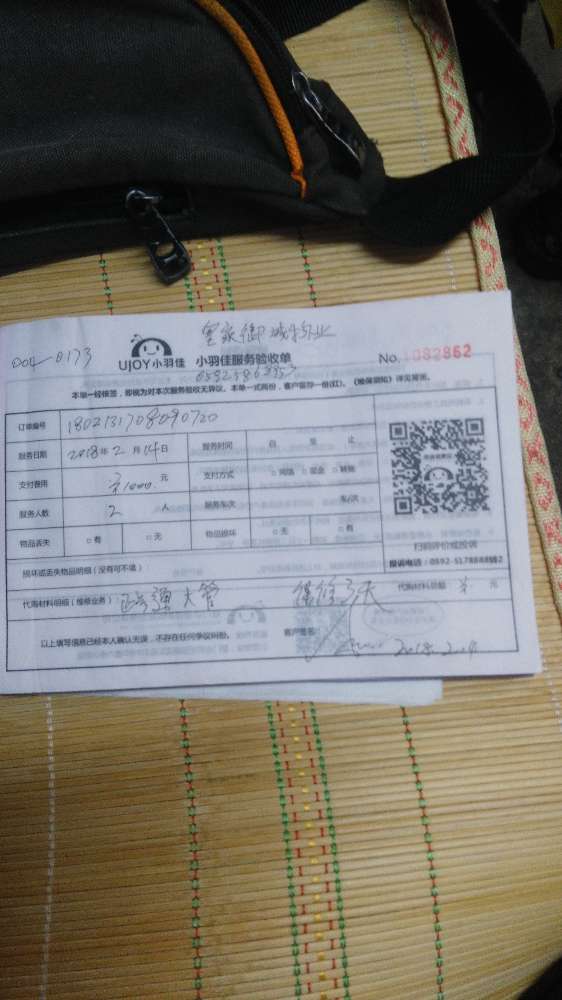 皇家御城物业
004-0173
UJOY小羽佳 小羽佳服务验收单 No. 1082862
本单一经核签，即视为对本次服务验收无异议，本单一式两份，客户留存一份(红)，《维保须知》详见背面。
订单编号 1802131708090720
服务日期 2018年2月14日 服务时间 自 至 止
支付费用 ¥1000. 元 支付方式 □ 网络 □ 现金 □ 转账
服务人数 2 人 服务车次 车/次
物品丢失 □ 有 □ 无 物品损坏 □ 无 □ 有
扫码评价或投诉
投诉电话：0592-5178888
损坏或丢失物品明细（没有可不填）
代购材料明细（维修业务） 疏通大管 保修3天 代购材料总额 元
以上填写信息已经本人确认无误，不存在任何争议纠纷。 客户签名： 2018.2.14